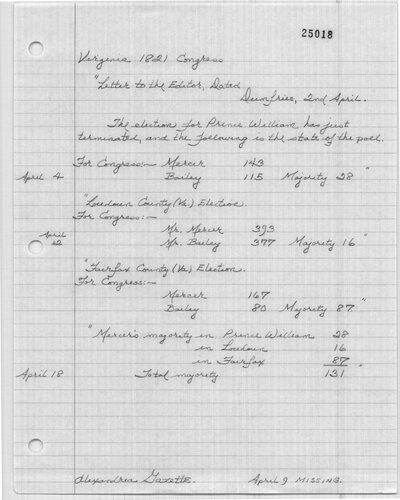 25018
Virginia 1821 Congress
"Letter to the Editor, Dated
Dumfries, 2nd April.
The election for Prince William has just
terminated, and the following is the state of the poll.
For Congress:— Mercer 143
April 4 Bailey 115 Majority 28"
"Loudoun County (Va) Election.
For Congress:—
Mr. Mercer 393
April 12 Mr. Bailey 377 Majority 16"
"Fairfax County (Va) Election.
For Congress:—
Mercer 167
Bailey 80 Majority 87"
"Mercer's majority in Prince William 28
in Loudoun 16
in Fairfax 87
April 18 Total majority 131"
Alexandria Gazette. April 9 MISSING.